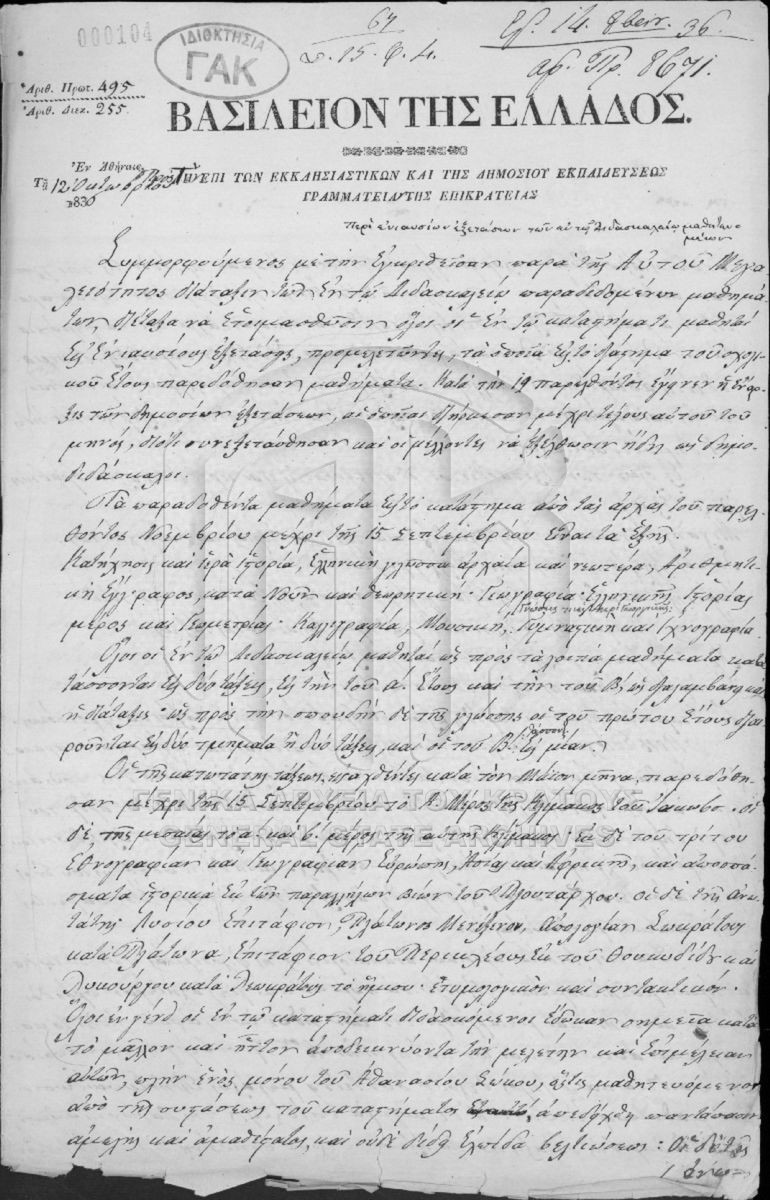 000104
ΙΔΙΟΚΤΗΣΙΑ
ΓΑΚ
64
15. Φ. 4.
14. 8βρίου 36.
αρ. Πρ. 8671.
Ἀριθ. Πρωτ. 495
Ἀριθ. Διεκ. 255
ΒΑΣΙΛΕΙΟΝ ΤΗΣ ΕΛΛΑΔΟΣ.
Ἐν Ἀθήναις
Τῇ 12 Ὀκτωβρίου
1836
Πρὸς ΤὴΝ ΕΠΙ ΤΩΝ ΕΚΚΛΗΣΙΑΣΤΙΚΩΝ ΚΑΙ ΤΗΣ ΔΗΜΟΣΙΟΥ ΕΚΠΑΙΔΕΥΣΕΩΣ
ΓΡΑΜΜΑΤΕΙΑΝ ΤΗΣ ΕΠΙΚΡΑΤΕΙΑΣ
Περὶ ἐνιαυσίων ἐξετάσεων τῶν ἐν τῷ Διδασκαλείῳ μαθητευο-
μένων
Συμμορφούμενος με τὴν ἐγκριθεῖσαν παρὰ τῆς Αὐτοῦ Μεγα-
λειότητος διάταξιν τῶν ἐν τῷ Διδασκαλείῳ παραδιδομένων μαθημά-
των, διέταξα νὰ ἑτοιμασθῶσιν ὅλοι οἱ ἐν τῷ καταστήματι μαθηταὶ
εἰς ἐνιαυσίους ἐξετάσεις, προμελετῶντες τὰ ὁποῖα εἰς τὸ διάστημα τοῦ σχολι-
κοῦ ἔτους παρεδόθησαν μαθήματα. Κατὰ τὴν 19 παρελθόντος ἔγεινεν ἡ ἔναρ-
ξις τῶν δημοσίων ἐξετάσεων, αἱ ὁποῖαι διήρκεσαν μέχρι τέλους αὐτοῦ τοῦ
μηνός, διότι συνεξετάσθησαν καὶ οἱ μέλλοντες νὰ ἐξέλθωσιν ἤδη ὡς δημο-
διδάσκαλοι.
Τὰ παραδοθέντα μαθήματα εἰς τὸ κατάστημα ἀπὸ τὰς ἀρχὰς τοῦ παρελ-
θόντος Νοεμβρίου μέχρι τῆς 15 Σεπτεμβρίου εἶναι τὰ ἑξῆς.
Κατήχησις καὶ ἱερὰ ἱστορία, Ἑλληνικὴ γλῶσσα ἀρχαία καὶ νεωτέρα, Ἀριθμητι-
κὴ ἔγγραφος, κατὰ νοῦν καὶ θεωρητική. Γεωγραφία. Ἑλληνικῆς ἱστορίας
μέρος καὶ Γεωμετρίας. Καλλιγραφία, Μουσική, Γυμναστικὴ καὶ ἰχνογραφία
Ὅλοι οἱ ἐν τῷ Διδασκαλείῳ μαθηταὶ ὡς πρὸς τὰ λοιπὰ μαθήματα κατα-
τάσσονται εἰς δύο τάξεις, εἰς τὴν τοῦ Α. ἔτους καὶ τὴν τοῦ Β, ὡς διαλαμβάνει καὶ
ἡ διάταξις. ὡς πρὸς τὴν σπουδὴν δὲ τῆς γλώσσης οἱ τοῦ πρώτου ἔτους διαι-
ροῦνται εἰς δύο τμήματα ἢ δύο τάξεις, καὶ οἱ τοῦ Β. εἰς μίαν.
Οἱ τῆς κατωτάτης τάξεως, εἰσαχθέντες κατὰ τὸν Μάϊον μῆνα, παρεδόθη-
σαν μέχρι τῆς 15 Σεπτεμβρίου τὸ Α. Μέρος τῆς Κλίμακος τοῦ Ἰακώβς. οἱ
δὲ τῆς μεσαίας τὸ α. καὶ β. μέρος τῆς αὐτῆς Κλίμακος. Ἐκ δὲ τοῦ τρίτου
Ἐθνογραφίαν καὶ Γεωγραφίαν Εὐρώπης, Ἀσίας καὶ Ἀφρικῆς, καὶ ἀποσπά-
σματα ἱστορικὰ ἐκ τῶν παραλλήλων βίων τοῦ Πλουτάρχου. οἱ δὲ τῆς ἀνω-
τάτης Λυσίου Ἐπιτάφιον, Πλάτωνος Μενέξενον, Ἀπολογίαν Σωκράτους
κατὰ Πλάτωνα, Ἐπιτάφιον τοῦ Περικλέους ἐκ τοῦ Θουκυδίδου καὶ
Λυκούργου κατὰ Λεωκράτους τὸ ἥμισυ. Ἐτυμολογικὸν καὶ συντακτικόν.
Ὅλοι ἐν γένει οἱ ἐν τῷ καταστήματι διδασκόμενοι ἔδωκαν σημεῖα κατὰ
τὸ μᾶλλον καὶ ἧττον ἀποδεικνύοντα τὴν μελέτην καὶ ἐπιμέλειαν
αὐτῶν, πλὴν ἑνὸς μόνου τοῦ Ἀθανασίου, ὅστις μαθητευόμενος
ἀπὸ τῆς συστάσεως τοῦ καταστήματος ἀπεδείχθη παντάπασιν
ἀμελὴς καὶ ἀμαθέστατος, καὶ οὐδὲ δίδει ἐλπίδα βελτιώσεως: Οἱ δὲ τῆς
ἀνω-
ΓΕΝΙΚΑ ΑΡΧΕΙΑ ΤΟΥ ΚΡΑΤΟΥΣ
GENERAL STATE ARCHIVES